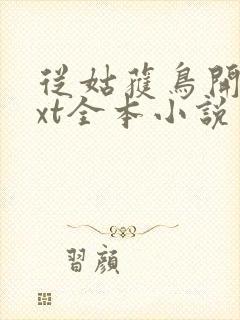 從姑蘿鳥開
xt全本小說
習顏